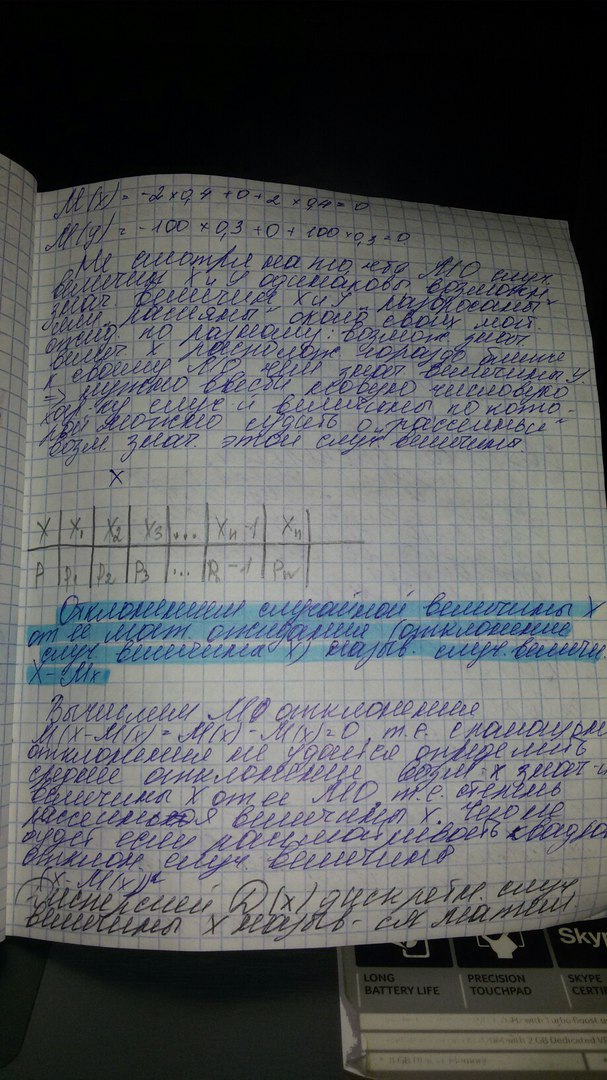 M(x) = -2×0,4 + 0 + 2 × 0,4 = 0
M(y) = -100 × 0,3 + 0 + 100 × 0,3 = 0
Не смотря на то, что МО случ.
величин X и Y одинаковы возможн.
знач величин X и Y разбросаны
около своих мат.
ожид по разному: возмож знач
X располож гораздо ближе
к своему МО чем знач величины Y
=> нужно ввести новую числовую
хар-ку случ-й величины по кото-
рой можно судить о рассеиньи
возм. знач. этой случ. величины.
X
X | X₁ | X₂ | X₃ | ... | Xn-1 | Xn
P | P₁ | P₂ | P₃ | ... | Pn-1 | Pn
Отклонением случайной величины X
от ее мат. ожидания (отклонение
случ величины X) назыв. случ. величи
X - Mx
Вычислим МО отклонения
M(X-M(x) = M(x) - M(x) = 0, т.е. с помощью
отклонения не удается определить
среднее отклонение возм-х знач-й
величины X от ее МО, т.е. степень
величины X.
будет если рассматривать квадра
отклон. случ. величины
(x-M(x))²
Дисперсией D(x) дискретн. случ.
величины X назыв-ся матем.
LONG
BATTERY LIFE
PRECISION
TOUCHPAD
Skyp
SKYPE
CERTI
with Turbo Boost u
with 2 GB Dedicated V